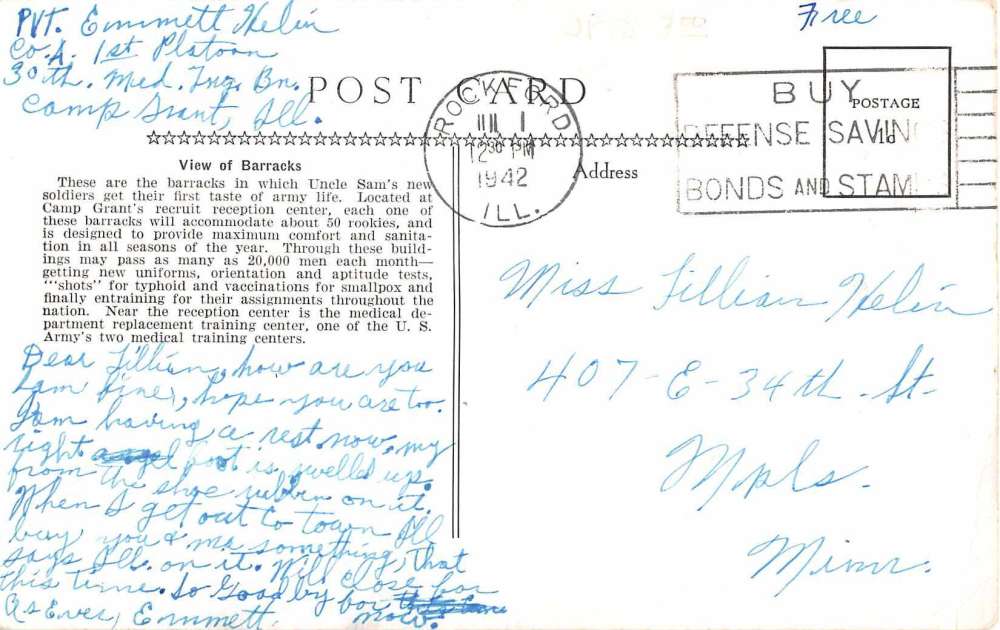 PVT. Emmett Helin
Co. A. 1st Platoon
30th. Med. Trg. Bn.
Camp Grant, Ill.
Free
POST CARD
ROCKFORD
1
12 30 PM
1942
ILL.
BUY
DEFENSE SAVIN
BONDS AND STAM
POSTAGE
1¢
View of Barracks
These are the barracks in which Uncle Sam's new
soldiers get their first taste of army life. Located at
Camp Grant's recruit reception center, each one of
these barracks will accommodate about 50 rookies, and
is designed to provide maximum comfort and sanita-
tion in all seasons of the year. Through these build-
ings may pass as many as 20,000 men each month—
getting new uniforms, orientation and aptitude tests,
"'shots" for typhoid and vaccinations for smallpox and
finally entraining for their assignments throughout the
nation. Near the reception center is the medical de-
partment replacement training center, one of the U. S.
Army's two medical training centers.
Dear Lillian, how are you
I am fine, hope you are too.
I am having a rest now, my
right foot is swelled up.
from the shoe rubbin on it.
When I get out to town Ill
buy you & ma something, that
says Ill. on it. Will close for
this time. So Good by for
now.
As Ever, Emmett.
Address
Miss Lillian Helin
407-E-34th-St-
Mpls-
Minn.